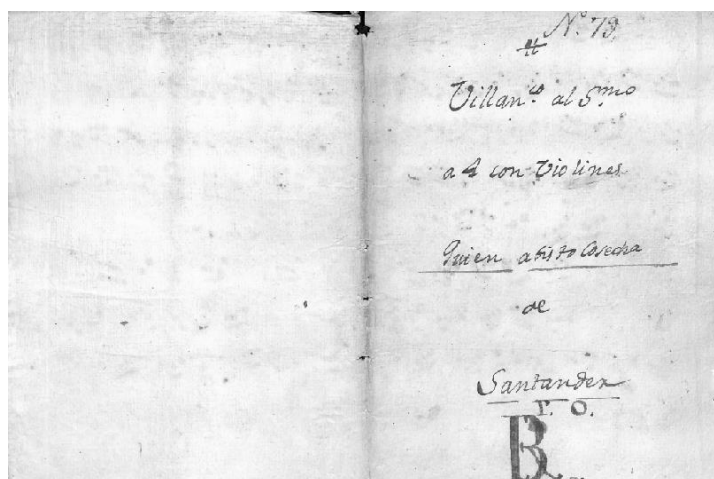 Nº 79
Villanco al Smo
a 4 con Violines
Quien a bisto Cosecha
de
Santander
P. O.
B